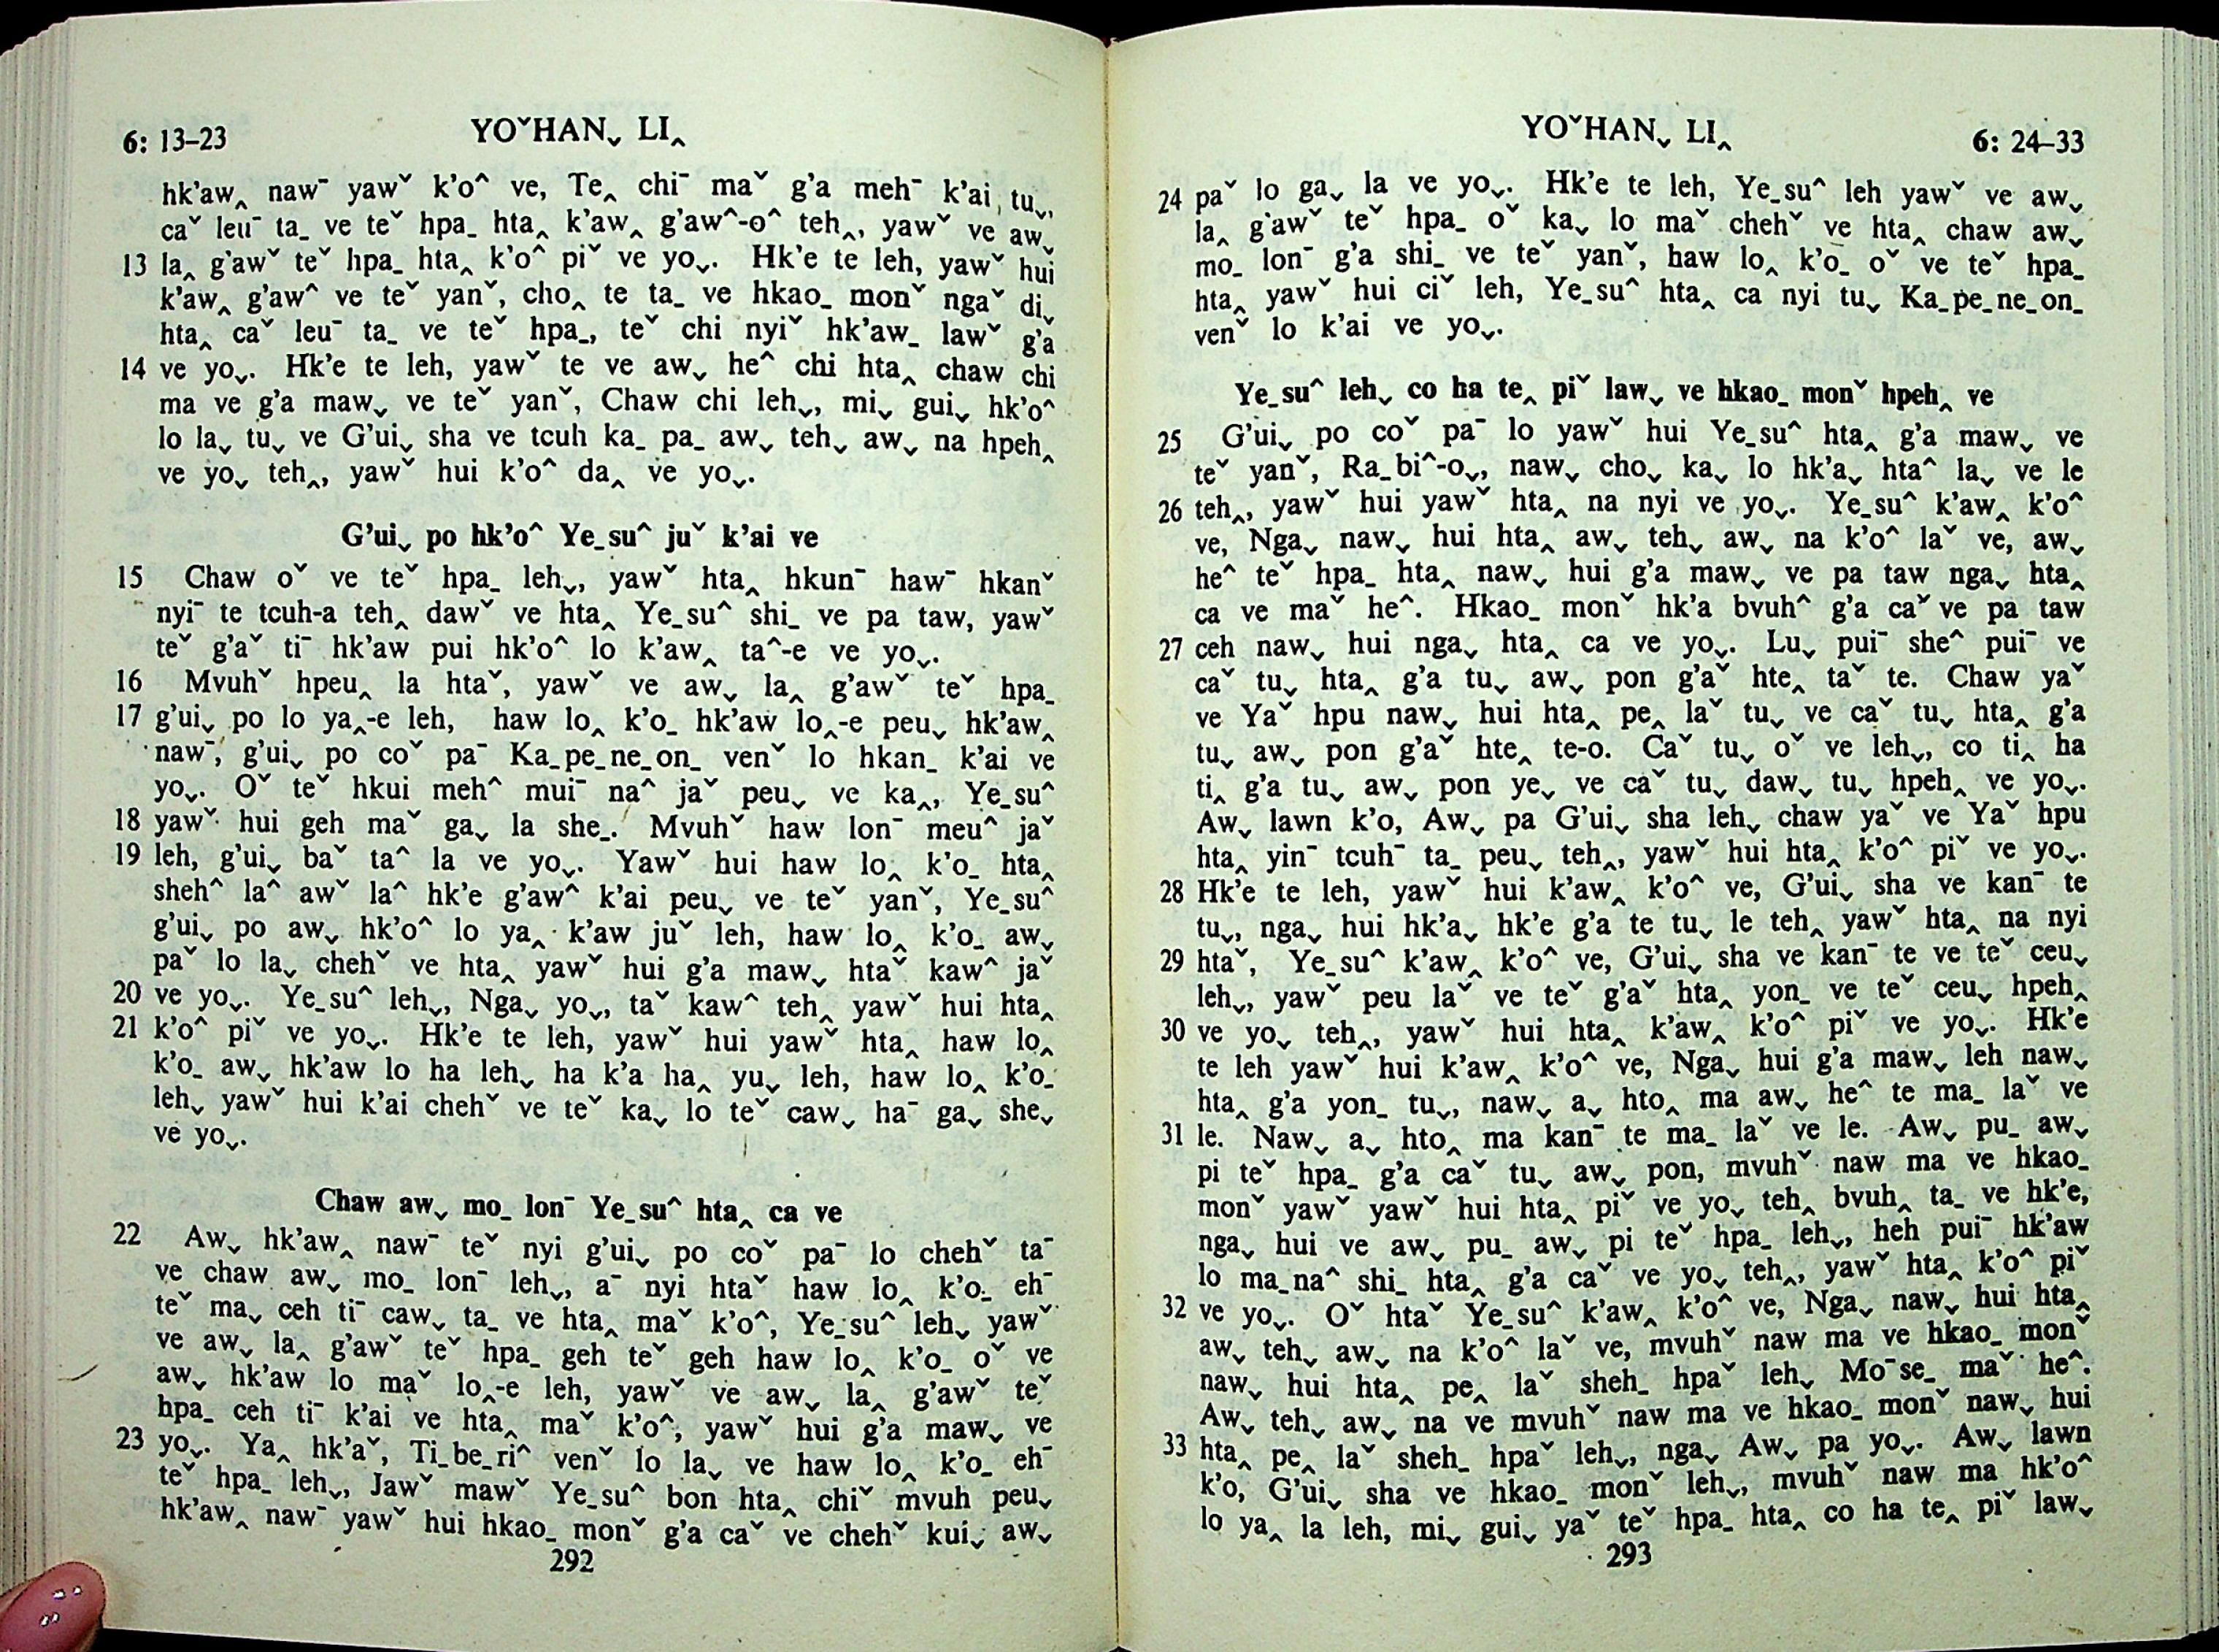 6: 13–23
YOˇHANˬ LIꞈ
hk'awꞈ naw¯ yawˇ k'oˆ ve, Teꞈ chi¯ maˇ g'a meh¯ k'ai tuˬ,
caˇ leu¯ taˍ ve teˇ hpaˍ htaꞈ k'awꞈ g'awˆ-oˆ tehꞈ, yawˇ ve awˬ
13 laꞈ g'awˇ teˇ hpaˍ htaꞈ k'oˆ piˇ ve yoˬ. Hk'e te leh, yawˇ hui
k'awꞈ g'awˆ ve teˇ yanˇ, choꞈ te taˍ ve hkaoˍ monˇ ngaˇ diˬ
htaꞈ caˇ leu¯ taˍ ve teˇ hpaˍ, teˇ chi nyiˇ hk'awˍ lawˇ g'a
14 ve yoˬ. Hk'e te leh, yawˇ te ve awˬ heˆ chi htaꞈ chaw chi
ma ve g'a mawˬ ve teˇ yanˇ, Chaw chi lehˬ, miˬ guiˬ hk'oˆ
lo laˬ tuˬ ve G'uiˬ sha ve tcuh kaˍ paˍ awˬ tehˬ awˬ na hpehꞈ
ve yoˬ tehꞈ, yawˇ hui k'oˆ daꞈ ve yoˬ.
G'uiˬ po hk'oˆ Yeˍsuˆ juˇ k'ai ve
15 Chaw oˇ ve teˇ hpaˍ lehˬ, yawˇ htaꞈ hkun¯ haw¯ hkanˇ
nyi¯ te tcuh-a tehꞈ dawˇ ve htaꞈ Yeˍsuˆ shiˍ ve pa taw, yawˇ
teˇ g'aˇ ti¯ hk'aw pui hk'oˆ lo k'awꞈ taˆ-e ve yoˬ.
16 Mvuhˇ hpeuꞈ la htaˇ, yawˇ ve awˬ laꞈ g'awˇ teˇ hpaˍ
17 g'uiˬ po lo yaꞈ-e leh, haw loꞈ k'oˍ hk'aw loꞈ-e peuˬ hk'awꞈ
naw¯, g'uiˬ po coˇ pa¯ Kaˍpeˍneˍonˍ venˇ lo hkanˍ k'ai ve
yoˬ. Oˇ teˇ hkui mehˆ mui¯ naˆ jaˇ peuˬ ve kaꞈ, Yeˍsuˆ
18 yawˇ hui geh maˇ gaˬ la sheˍ. Mvuhˇ haw lon¯ meuˆ jaˇ
19 leh, g'uiˬ baˇ taˆ la ve yoˬ. Yawˇ hui haw loꞈ k'oˍ htaꞈ
shehˆ laˆ awˇ laˆ hk'e g'awˆ k'ai peuˬ ve teˇ yanˇ, Yeˍsuˆ
g'uiˬ po awˬ hk'oˆ lo yaꞈ k'aw juˇ leh, haw loꞈ k'oˍ awˬ
paˇ lo laˬ chehˇ ve htaꞈ yawˇ hui g'a mawˬ htaˇ kawˆ jaˇ
20 ve yoˬ. Yeˍsuˆ lehˬ, Ngaˬ yoˬ, taˇ kawˆ tehꞈ yawˇ hui htaꞈ
21 k'oˆ piˇ ve yoˬ. Hk'e te leh, yawˇ hui yawˇ htaꞈ haw loꞈ
k'oˍ awˬ hk'aw lo ha lehˬ ha k'a haꞈ yuˬ leh, haw loꞈ k'oˍ
lehˬ yawˇ hui k'ai chehˇ ve teˇ kaˬ lo teˇ cawˬ ha¯ gaˬ sheˬ
ve yoˬ.
Chaw awˬ moˍ lon¯ Yeˍsuˆ htaꞈ ca ve
22 Awˬ hk'awꞈ naw¯ teˇ nyi g'uiˬ po coˇ pa¯ lo chehˇ ta¯
ve chaw awˬ moˍ lon¯ lehˬ, a¯ nyi htaˇ haw loꞈ k'oˍ eh¯
teˇ maˬ ceh ti¯ cawˬ taˍ ve htaꞈ maˇ k'oˆ, Yeˍsuˆ lehˬ yawˇ
ve awˬ laꞈ g'awˇ teˇ hpaˍ geh teˇ geh haw loꞈ k'oˍ oˇ ve
awˬ hk'aw lo maˇ loꞈ-e leh, yawˇ ve awˬ laꞈ g'awˇ teˇ
hpaˍ ceh ti¯ k'ai ve htaꞈ maˇ k'oˆ, yawˇ hui g'a mawˬ ve
23 yoˬ. Yaꞈ hk'aˇ, Tiˍbeˍriˆ venˇ lo laˬ ve haw loꞈ k'oˍ eh¯
teˇ hpaˍ lehˬ, Jawˇ mawˇ Yeˍsuˆ bon htaꞈ chiˇ mvuh peuˬ
hk'awꞈ naw¯ yawˇ hui hkaoˍ monˇ g'a caˇ ve chehˇ kuiˬ awˬ
292
YOˇHANˬ LIꞈ
6: 24–33
24 paˇ lo gaˬ la ve yoˬ. Hk'e te leh, Yeˍsuˆ leh yawˇ ve awˬ
laꞈ g'awˇ teˇ hpaˍ oˇ kaˬ lo maˇ chehˇ ve htaꞈ chaw awˬ
moˍ lon¯ g'a shiˍ ve teˇ yanˇ, haw loꞈ k'oˍ oˇ ve teˇ hpaˍ
htaꞈ yawˇ hui ciˇ leh, Yeˍsuˆ htaꞈ ca nyi tuˬ Kaˍpeˍneˍonˍ
venˇ lo k'ai ve yoˬ.
Yeˍsuˆ lehˬ co ha teꞈ piˇ lawˬ ve hkaoˍ monˇ hpehꞈ ve
25 G'uiˬ po coˇ pa¯ lo yawˇ hui Yeˍsuˆ htaꞈ g'a mawˬ ve
teˇ yanˇ, Raˍbiˆ-oˬ, nawˬ choˬ kaˬ lo hk'aˬ htaˆ laˬ ve le
26 tehꞈ, yawˇ hui yawˇ htaꞈ na nyi ve yoˬ. Yeˍsuˆ k'awꞈ k'oˆ
ve, Ngaˬ nawˬ hui htaꞈ awˬ tehˬ awˬ na k'oˆ laˇ ve, awˬ
heˆ teˇ hpaˍ htaꞈ nawˬ hui g'a mawˬ ve pa taw ngaˬ htaꞈ
ca ve maˇ heˆ. Hkaoˍ monˇ hk'a bvuhˆ g'a caˇ ve pa taw
27 ceh nawˬ hui ngaˬ htaꞈ ca ve yoˬ. Luˬ pui¯ sheˆ pui¯ ve
caˇ tuˬ htaꞈ g'a tuˬ awˬ pon g'aˇ hteꞈ taˇ te. Chaw yaˇ
ve Yaˇ hpu nawˬ hui htaꞈ peꞈ laˇ tuˬ ve caˇ tuˬ htaꞈ g'a
tuˬ awˬ pon g'aˇ hteꞈ te-o. Caˇ tuˬ oˇ ve lehˬ, co tiꞈ ha
tiꞈ g'a tuˬ awˬ pon yeˬ ve caˇ tuˬ dawˬ tuˬ hpehꞈ ve yoˬ.
Awˬ lawn k'o, Awˬ pa G'uiˬ sha lehˬ chaw yaˇ ve Yaˇ hpu
htaꞈ yin¯ tcuh¯ taˍ peuˬ tehꞈ, yawˇ hui htaꞈ k'oˆ piˇ ve yoˬ.
28 Hk'e te leh, yawˇ hui k'awꞈ k'oˆ ve, G'uiˬ sha ve kan¯ te
tuˬ, ngaˬ hui hk'aˬ hk'e g'a te tuˬ le tehꞈ yawˇ htaꞈ na nyi
29 htaˇ, Yeˍsuˆ k'awꞈ k'oˆ ve, G'uiˬ sha ve kan¯ te ve teˇ ceuˬ
lehˬ, yawˇ peu laˇ ve teˇ g'aˇ htaꞈ yonˍ ve teˇ ceuˬ hpehꞈ
30 ve yoˬ tehꞈ, yawˇ hui htaꞈ k'awꞈ k'oˆ piˇ ve yoˬ. Hk'e
te leh yawˇ hui k'awꞈ k'oˆ ve, Ngaˬ hui g'a mawˬ leh nawˬ
htaꞈ g'a yonˍ tuˬ, nawˬ aˬ htoꞈ ma awˬ heˆ te maˍ laˇ ve
31 le. Nawˬ aˬ htoꞈ ma kan¯ te maˍ laˇ ve le. Awˬ puˍ awˬ
pi teˇ hpaˍ g'a caˇ tuˬ awˬ pon, mvuhˇ naw ma ve hkaoˍ
monˇ yawˇ yawˇ hui htaꞈ piˇ ve yoˬ tehꞈ bvuhꞈ taˍ ve hk'e,
ngaˬ hui ve awˬ puˍ awˬ pi teˇ hpaˍ lehˬ, heh pui¯ hk'aw
lo maˍnaˆ shiˍ htaꞈ g'a caˇ ve yoˬ tehꞈ, yawˇ htaꞈ k'oˆ piˇ
32 ve yoˬ. Oˇ htaˇ Yeˍsuˆ k'awꞈ k'oˆ ve, Ngaˬ nawˬ hui htaꞈ
awˬ tehˬ awˬ na k'oˆ laˇ ve, mvuhˇ naw ma ve hkaoˍ monˇ
nawˬ hui htaꞈ peꞈ laˇ shehˍ hpaˇ lehˬ Mo¯seˍ maˇ heˆ.
Awˬ tehˬ awˬ na ve mvuhˇ naw ma ve hkaoˍ monˇ nawˬ hui
33 htaꞈ peꞈ laˇ shehˍ hpaˇ lehˬ, ngaˬ Awˬ pa yoˬ. Awˬ lawn
k'o, G'uiˬ sha ve hkaoˍ monˇ lehˬ, mvuhˇ naw ma hk'oˆ
lo yaꞈ la leh, miˬ guiˬ yaˇ teˇ hpaˍ htaꞈ co ha teꞈ piˇ lawˬ
293